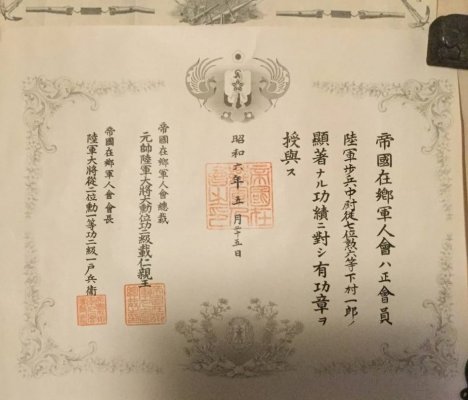 帝國在鄉軍人會ハ正會員
陸軍歩兵中尉從七位勲六等下村一郎ノ
顯著ナル功績ニ對シ有功章ヲ
授與ス
昭和六年五月廿五日
帝國在鄉軍人會總裁
元帥陸軍大將大勲位功二級載仁親王
帝國在鄉軍人會會長
陸軍大將從二位勲一等功二級一戸兵衛